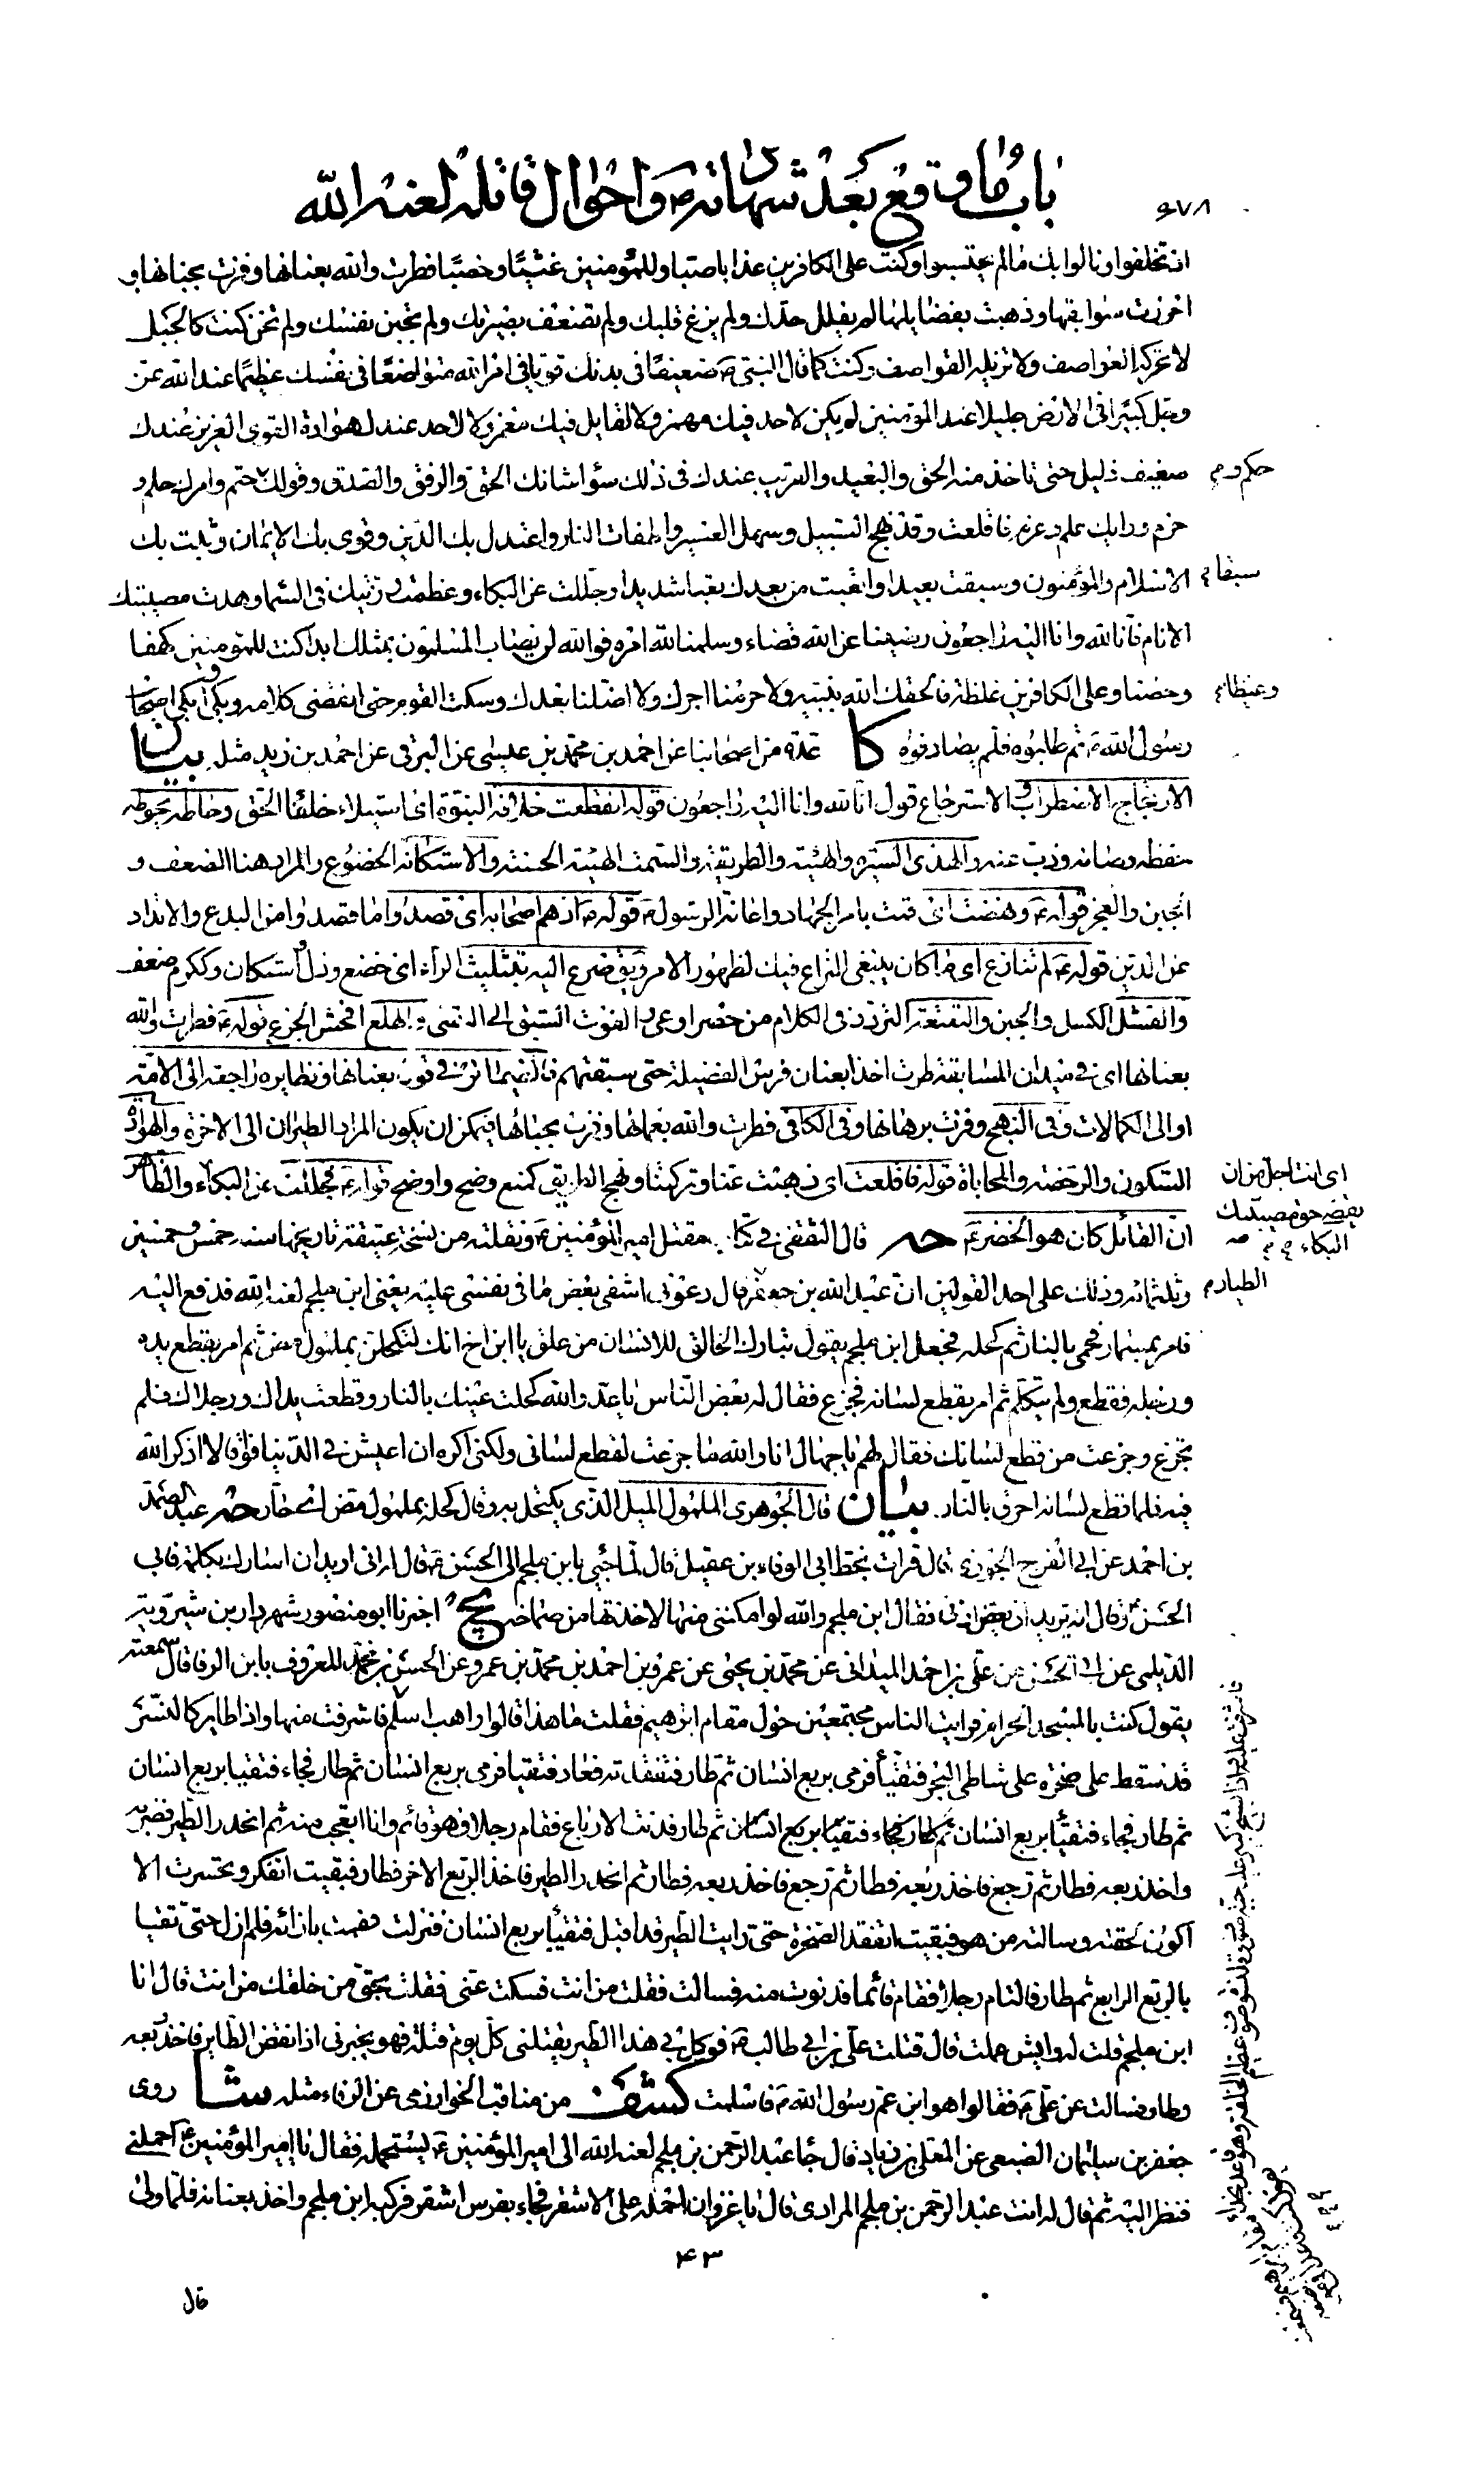 ٩٧٨
باب ما وقع بعد شهادته ع واحوال قاتله لعنه الله
ان تخلفوا ونالوا بك ما لم يحتسبوا وكنت على الكافرين عذابا صبا وللمؤمنين غيثا وخصبا فطرت والله بعنانها وفزت بجنانها و
احرزت سوابقها وذهبت بفضايلها لم يفلل حدك ولم يزغ قلبك ولم تضعف بصيرتك ولم تجبن نفسك ولم تخن كنت كالجبل
لا تحركه العواصف ولا تزيله القواصف وكنت كما قال النبي ص ضعيفا في بدنك قويا في امر الله متواضعا في نفسك عظيما عند الله عز
وجل كبيرا في الارض جليلا عند المؤمنين لم يكن لاحد فيك مهمز ولا لقايل فيك مغمز ولا لاحد عندك هوادة القوي العزيز عندك
ضعيف ذليل حتى تاخذ منه الحق والبعيد والقريب عندك في ذلك سواء شانك الحق والرفق والصدق وقولك حتم وامرك حلم و
حكم و م
حزم ورايك علم وعزم فاقلعت وقد نهج السبيل وسهل العسير واطفات النار واعتدل بك الدين وقوي بك الايمان وثبت بك
الاسلام والمؤمنون وسبقت بعيدا واتعبت من بعدك تعبا شديدا وجللت عن البكاء وعظمت رزيتك في السماء وهدت مصيبتك
سبقا م
الانام فانا لله وانا اليه راجعون رضينا عن الله قضاء وسلمنا لله امره فوالله لن يصاب المسلمون بمثلك ابدا كنت للمؤمنين كهفا
وحصنا وعلى الكافرين غلظة فالحقك الله بنبيه ولا حرمنا اجرك ولا اضلنا بعدك وسكت القوم حتى انقضى كلامه وبكى وابكى اصحاب
وغيظا م
رسول الله ص ثم طلبوه فلم يصادفوه كا عدة من اصحابنا عن احمد بن محمد بن عيسى عن البرقي عن احمد بن زيد مثله بيان
الارتجاج الاضطراب والاسترجاع قول انا لله وانا اليه راجعون قوله انقطعت خلافة النبوة اي استيلاء خلفاء الحق وحاطه يحوطه
حفظه وصانه وذب عنه والهدى السيرة والهيئة والطريقة والسمت الهيئة الحسنة والاستكانة الخضوع والمراد هنا الضعف و
الجبن والعجز قوله ع ونهضت اي قمت بامر الجهاد واعانة الرسول ص قوله ع اذ هم اصحابه اي قصدوا ما قصدوا من البدع والارتداد
عن الدين قوله ع لم تنازع اي ما كان ينبغي النزاع فيك لظهور الامر ويق ضرع اليه بتثليث الراء اي خضع وذل واستكان وككرم ضعف
والفشل الكسل والجبن والتعتعة التردد في الكلام من حصر او عي والفوت السبق الى التمني والهلع افحش الجزع قوله ع فطرت والله
بعنانها اي في ميدان المسابقة طرت اخذا بعنان فرس الفضيلة حتى سبقتهم بعنانها ونظايره راجعة الى الامة
او الى الكمالات وفي النهج وفزت برهانها وفي الكافي فطرت والله بغمائها وفزت بحبائها فيمكن ان يكون المراد الطيران الى الاخرة والهوادة
السكون والرخصة والمحاباة قوله فاقلعت اي ذهبت عنا وتركتنا ونهج الطريق كمنع وضح واوضح قوله ع فجللت عن البكاء والظاهر
اي انت اجل من ان
يقضى حق مصيبتك
البكاء
ان القائل كان هو الخضر ع حه قال الثقفي في كتاب مقتل امير المؤمنين ع ونقلته من نسخة عتيقة تاريخها سنة خمس وخمسين
وثلثمائة وذلك على احد القولين ان عبد الله بن جعفر قال دعوني اشفي بعض ما في نفسي عليه يعني ابن ملجم لعنه الله فدفع اليه
الطيار م
فامر بمسمار فحمي بالنار ثم كحله فجعل ابن ملجم يقول تبارك الخالق للانسان من علق يا ابن اخ انك لتكحلن بملمول مض ثم امر بقطع يده
ورجله فقطع ولم يتكلم ثم امر بقطع لسانه فجزع فقال له بعض الناس يا عدو الله كحلت عينك بالنار وقطعت يداك ورجلاك فلم
تجزع وجزعت من قطع لسانك فقال لهم يا جهال انا والله ما جزعت لقطع لساني ولكني اكره ان اعيش في الدنيا فواقا لا اذكر الله
فيه فلما قطع لسانه احرق بالنار. بيان قال الجوهري الملمول الميل الذي يكتحل به وقال كحله بملمول مض اي حار حه عبد الصمد
بن احمد عن ابي الفرج الجوزي قال قرات بخط ابي الوفاء بن عقيل قال لما جيئ بابن ملجم الى الحسن ع قال له اني اريد ان اسارك بكلمة فابى
الحسن ع وقال انه يريد ان يعض اذني فقال ابن ملجم والله لو امكنني منها لاخذتها من صماخه يج اخبرنا ابو منصور شهردار بن شيرويه
الديلمي عن ابي الحسن عن علي بن احمد الميداني عن محمد بن يحيى عن عمرو بن احمد بن محمد بن عمرو عن الحسن بن محمد المعروف بابن الرفا قال سمعته
يقول كنت بالمسجد الحرام فرايت الناس مجتمعين حول مقام ابرهيم فقلت ما هذا قالوا راهب اسلم فاشرفت منها واذا طاير كالنسر
قد سقط على صخرة على شاطي البحر فتقيأ فرمى بربع انسان ثم طار فتفقدته فعاد فتقيا فرمى بربع انسان ثم طار فجاء فتقيا بربع انسان
ثم طار فجاء فتقيأ بربع انسان ثم طار فجاء فتقيأ بربع انسان ثم طار فدنت الارباع فقام رجلا فهو قائم وانا اتعجب منه ثم انحدر الطير فضربه
واخذ ربعه فطار ثم رجع فاخذ ربعه فطار ثم رجع فاخذ ربعه فطار ثم انحدر الطير فاخذ الربع الاخر فطار فبقيت اتفكر وتحسرت الا
اكون لحقته وسالته من هو فبقيت اتفقد الصخرة حتى رايت الطير قد اقبل فتقيأ بربع انسان فنزلت فقمت بازائه فلم ازل حتى تقيا
بالربع الرابع ثم طار فالتام رجلا فقام قائما فدنوت منه فسالت فقلت من انت فسكت عني فقلت بحق من خلقك من انت قال انا
ابن ملجم قلت له وايش عملت قال قتلت علي بن ابي طالب ع فوكل بي هذا الطير يقتلني كل يوم قتلة فهو يخبرني اذا انقض الطاير فاخذ ربعه
وطار فسالت عن علي ع فقالوا هو ابن عم رسول الله ص فاسلمت كشف من مناقب الخوارزمي عن الرفاء مثله شا روى
جعفر بن سليمان الضبعي عن المعلى بن زياد قال جاء عبد الرحمن بن ملجم لعنه الله الى امير المؤمنين ع يستحمله فقال يا امير المؤمنين ع احملني
فنظر اليه ثم قال له انت عبد الرحمن بن ملجم المرادي قال يا غزوان احمله على الاشقر فجاء بفرس اشقر فركبه ابن ملجم واخذ بعنانه فلما ولى
فاشرفت عليه فاذا بشيخ كبير عليه جبة صوف وقلنسوة صوف عظيم الخلقة وهو قاعد بحذاء
٤٣
قال